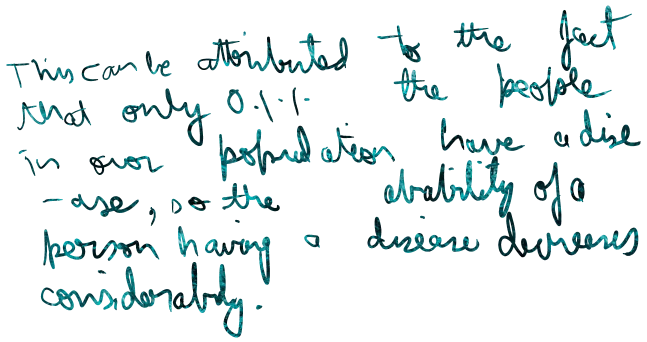 This can be attributed to the fact
that only 0.1% the people
in our population have a dise
-ase, so the abability of a
person having a disease decreases
considerably.